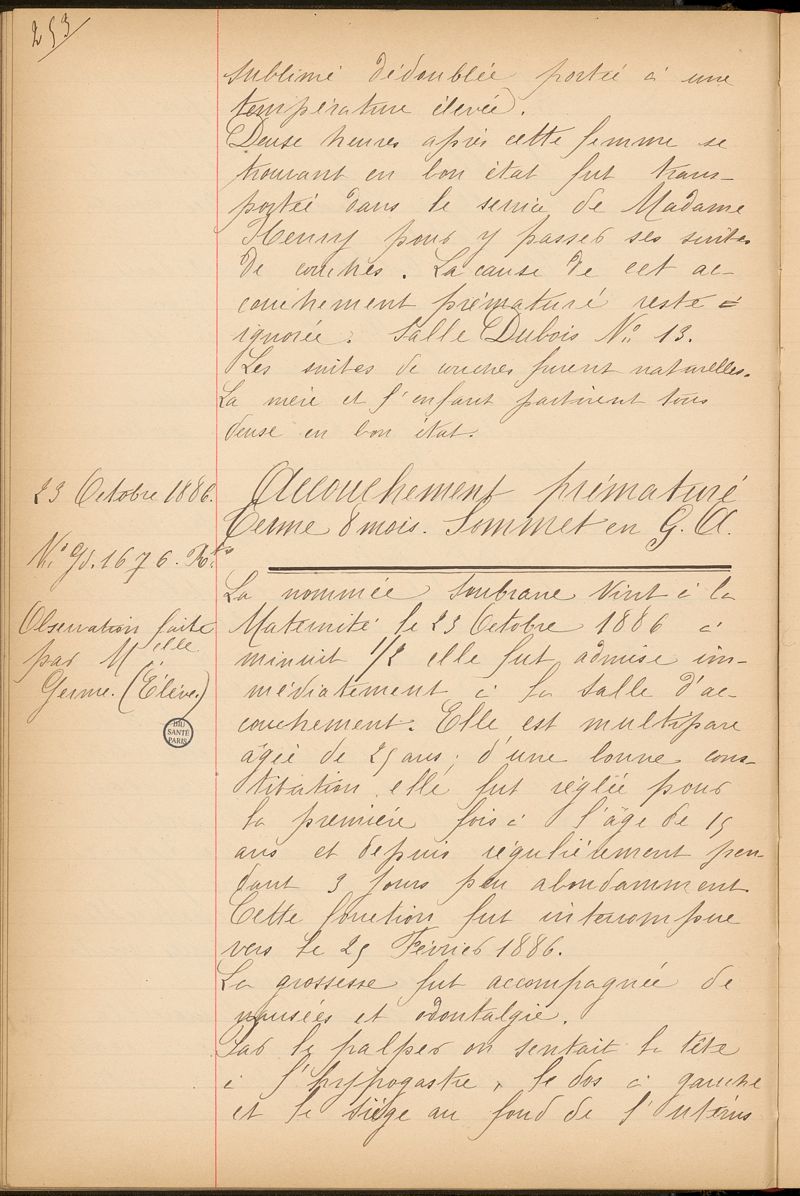 253
sublimé dédoublée porté à une
température élevée.
Deuse heures après cette femme se
trouvant en bon état fut trans-
portée dans le service de Madame
Henry pour y passer ses suites
de couches. La cause de cet ac-
couchement prématuré reste
ignorée. Salle Dubois No 13.
Les suites de couches furent naturelles.
La mère et l'enfant partirent tous
deuse en bon état.
23 Octobre 1886.
Accouchement prématuré
Terme 8 mois. Sommet en G. A.
No Gd. 1676.
La nommée Soubrane vint à la
Observation faite
par Melle
Germe. (Élève.)
Maternité le 23 Octobre 1886 à
minuit 1/2 elle fut admise im-
médiatement à la salle d'ac-
couchement. Elle est multipare
âgée de 25 ans; d'une bonne cons-
titution elle fut réglée pour
la première fois à l'âge de 15
ans et depuis régulièrement pen-
dant 3 jours peu abondamment
Cette fonction fut interrompue
vers le 25 Février 1886.
La grossesse fut accompagnée de
nausées et odontalgie.
Par le palper on sentait la tête
à l'hypogastre, le dos à gauche
et le siège au fond de l'utérus
BIU
SANTÉ
PARIS